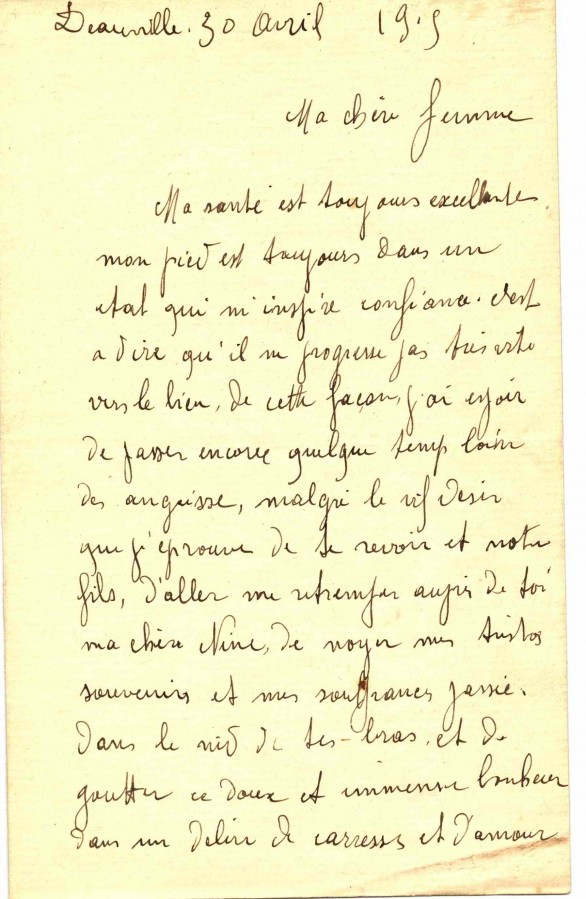 Deauville. 30 Avril 1915
Ma chère femme
Ma santé est toujours excellente
mon pied est toujours dans un
etat qui m'inspire confiance. c'est
a dire qu'il ne progresse pas très vite
vers le bien, de cette façon, j'ai espoir
de passer encore quelque temp loin
des angoisse, malgré le vif desir
que j'éprouve de te revoir et notre
fils, d'aller me retremper auprès de toi
ma chère Nine, de noyer mes tristes
souvenirs et mes souffrances passée.
dans le nid de tes bras. et de
goutter ce doux et immense bonheur
dans un delire de carresses et d'amour